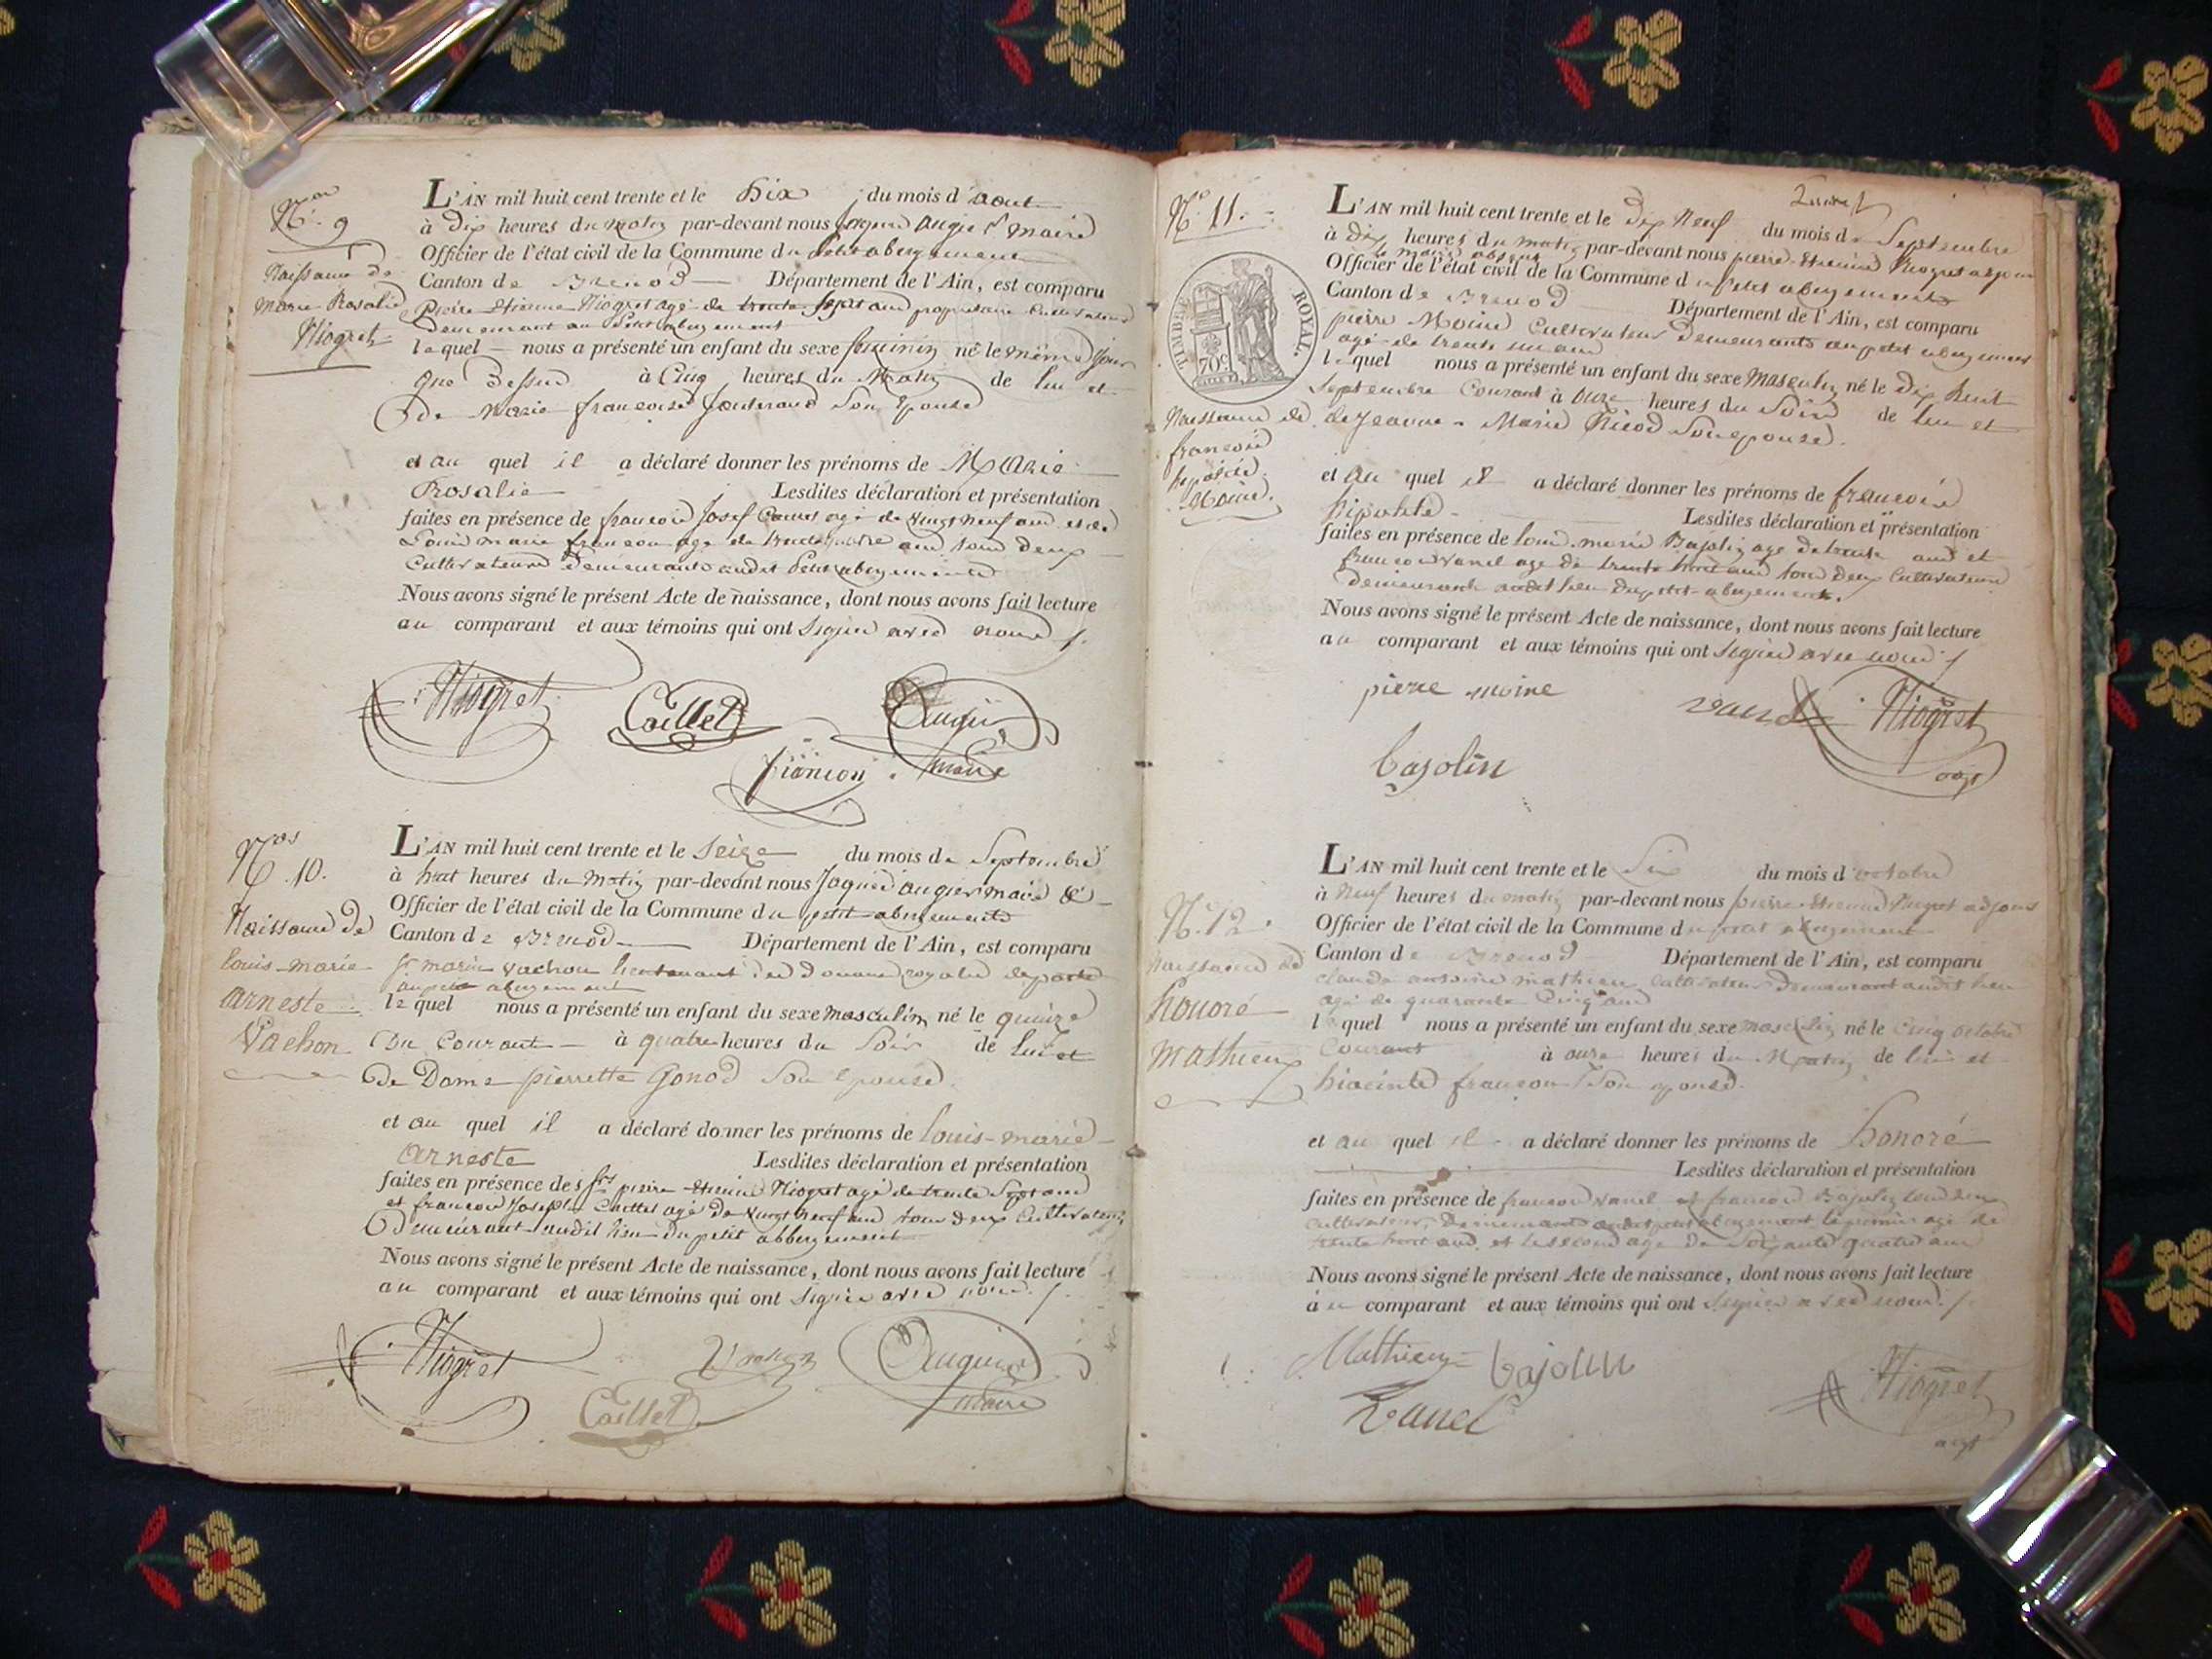 N.º 9
Naissance de
Marie Rosalie
Niogret
L'AN mil huit cent trente et le Dix du mois d'aout
à Dix heures du matin par-devant nous augier maire
Officier de l'état civil de la Commune du petit abergement
Canton de Brenod Département de l'Ain, est comparu
Pierre Etienne Niogret agé de trente sept ans propriétaire Cultivateur
demeurant au Petit abergement
lequel nous a présenté un enfant du sexe feminin né le même jour
que Dessus à Cinq heures du Matin de lui et
de Marie françoise son Epouse
et au quel il a déclaré donner les prénoms de Marie
Rosalie Lesdites déclaration et présentation
faites en présence de françois Josef Caillet agé de Vingt neuf ans et de
Louis marie françon agé de ans tous deux
Cultivateurs demeurants audit Petit abergement
Nous avons signé le présent Acte de naissance, dont nous avons fait lecture
au comparant et aux témoins qui ont signé avec nous
Niogret Caillet Augier
françon maire
N.os 10.
Naissance de
louis-marie
arneste
Vachon
L'AN mil huit cent trente et le Seize du mois de Septembre
à huit heures du matin par-devant nous Jaques augier maire &
Officier de l'état civil de la Commune du petit-abergement
Canton de Brenod Département de l'Ain, est comparu
Sr marin vachon lieutenant des Douanes royales de poste
au petit abergement
lequel nous a présenté un enfant du sexe masculin né le quinze
Du Courant à quatre heures du Soir de lui et
De Dame pierrette Gonod Son Epouse
et au quel il a déclaré donner les prénoms de louis-marie
arneste Lesdites déclaration et présentation
faites en présence des Srs pierre Etienne Niogret agé de trente Sept ans
et françois Joseph Caillet agé de Vingt neuf ans tous deux Cultivateurs
Demeurant audit lieu du petit abbergement
Nous avons signé le présent Acte de naissance, dont nous avons fait lecture
au comparant et aux témoins qui ont signé avec nous
Niogret Vachon Augier
Caillet maire
N.º 11.
TIMBRE ROYAL.
70c
Naissance de
françois
hipolite
Moine.
L'AN mil huit cent trente et le Dix Neuf du mois de Septembre
à Dix heures du matin par-devant nous pierre-Etienne Niogret adjoint
le maire absent
Officier de l'état civil de la Commune du petit abergement
Canton de Brenod Département de l'Ain, est comparu
pierre Moine Cultivateur Demeurant au petit abergement
agé de trente un ans
lequel nous a présenté un enfant du sexe Masculin né le Dix huit
Septembre Courant à onze heures du Soir de lui et
de Jeanne-Marie Nicod Son epouse.
et au quel il a déclaré donner les prénoms de françois
hipolite Lesdites déclaration et présentation
faites en présence de louis-marie Bajolin agé de trente ans et
françois vanel agé de trente huit ans tous deux Cultivateurs
Demeurant audit lieu Du petit-abergement.
Nous avons signé le présent Acte de naissance, dont nous avons fait lecture
au comparant et aux témoins qui ont signé avec nous
pierre moine vanel Niogret
bajolin adjt
N.º 12
Naissance de
honoré
mathieu
L'AN mil huit cent trente et le Six du mois d'octobre
à Neuf heures du matin par-devant nous pierre-Etienne Niogret adjoint
Officier de l'état civil de la Commune du petit abergement
Canton de Brenod Département de l'Ain, est comparu
claude antoine mathieu Cultivateur Demeurant audit lieu
agé de quarante Cinq ans
lequel nous a présenté un enfant du sexe masculin né le cinq octobre
Courant à onze heures du Matin de lui et
hiacinte françon Son epouse.
et au quel il a déclaré donner les prénoms de honoré
Lesdites déclaration et présentation
faites en présence de françois vanel et françois Bajolin tous deux
cultivateurs, Demeurant audit petit abergement le premier agé de
trente huit ans et le second agé de Soixante quatre ans
Nous avons signé le présent Acte de naissance, dont nous avons fait lecture
au comparant et aux témoins qui ont signé avec nous
Mathieu bajolin Niogret
Vanel adjt